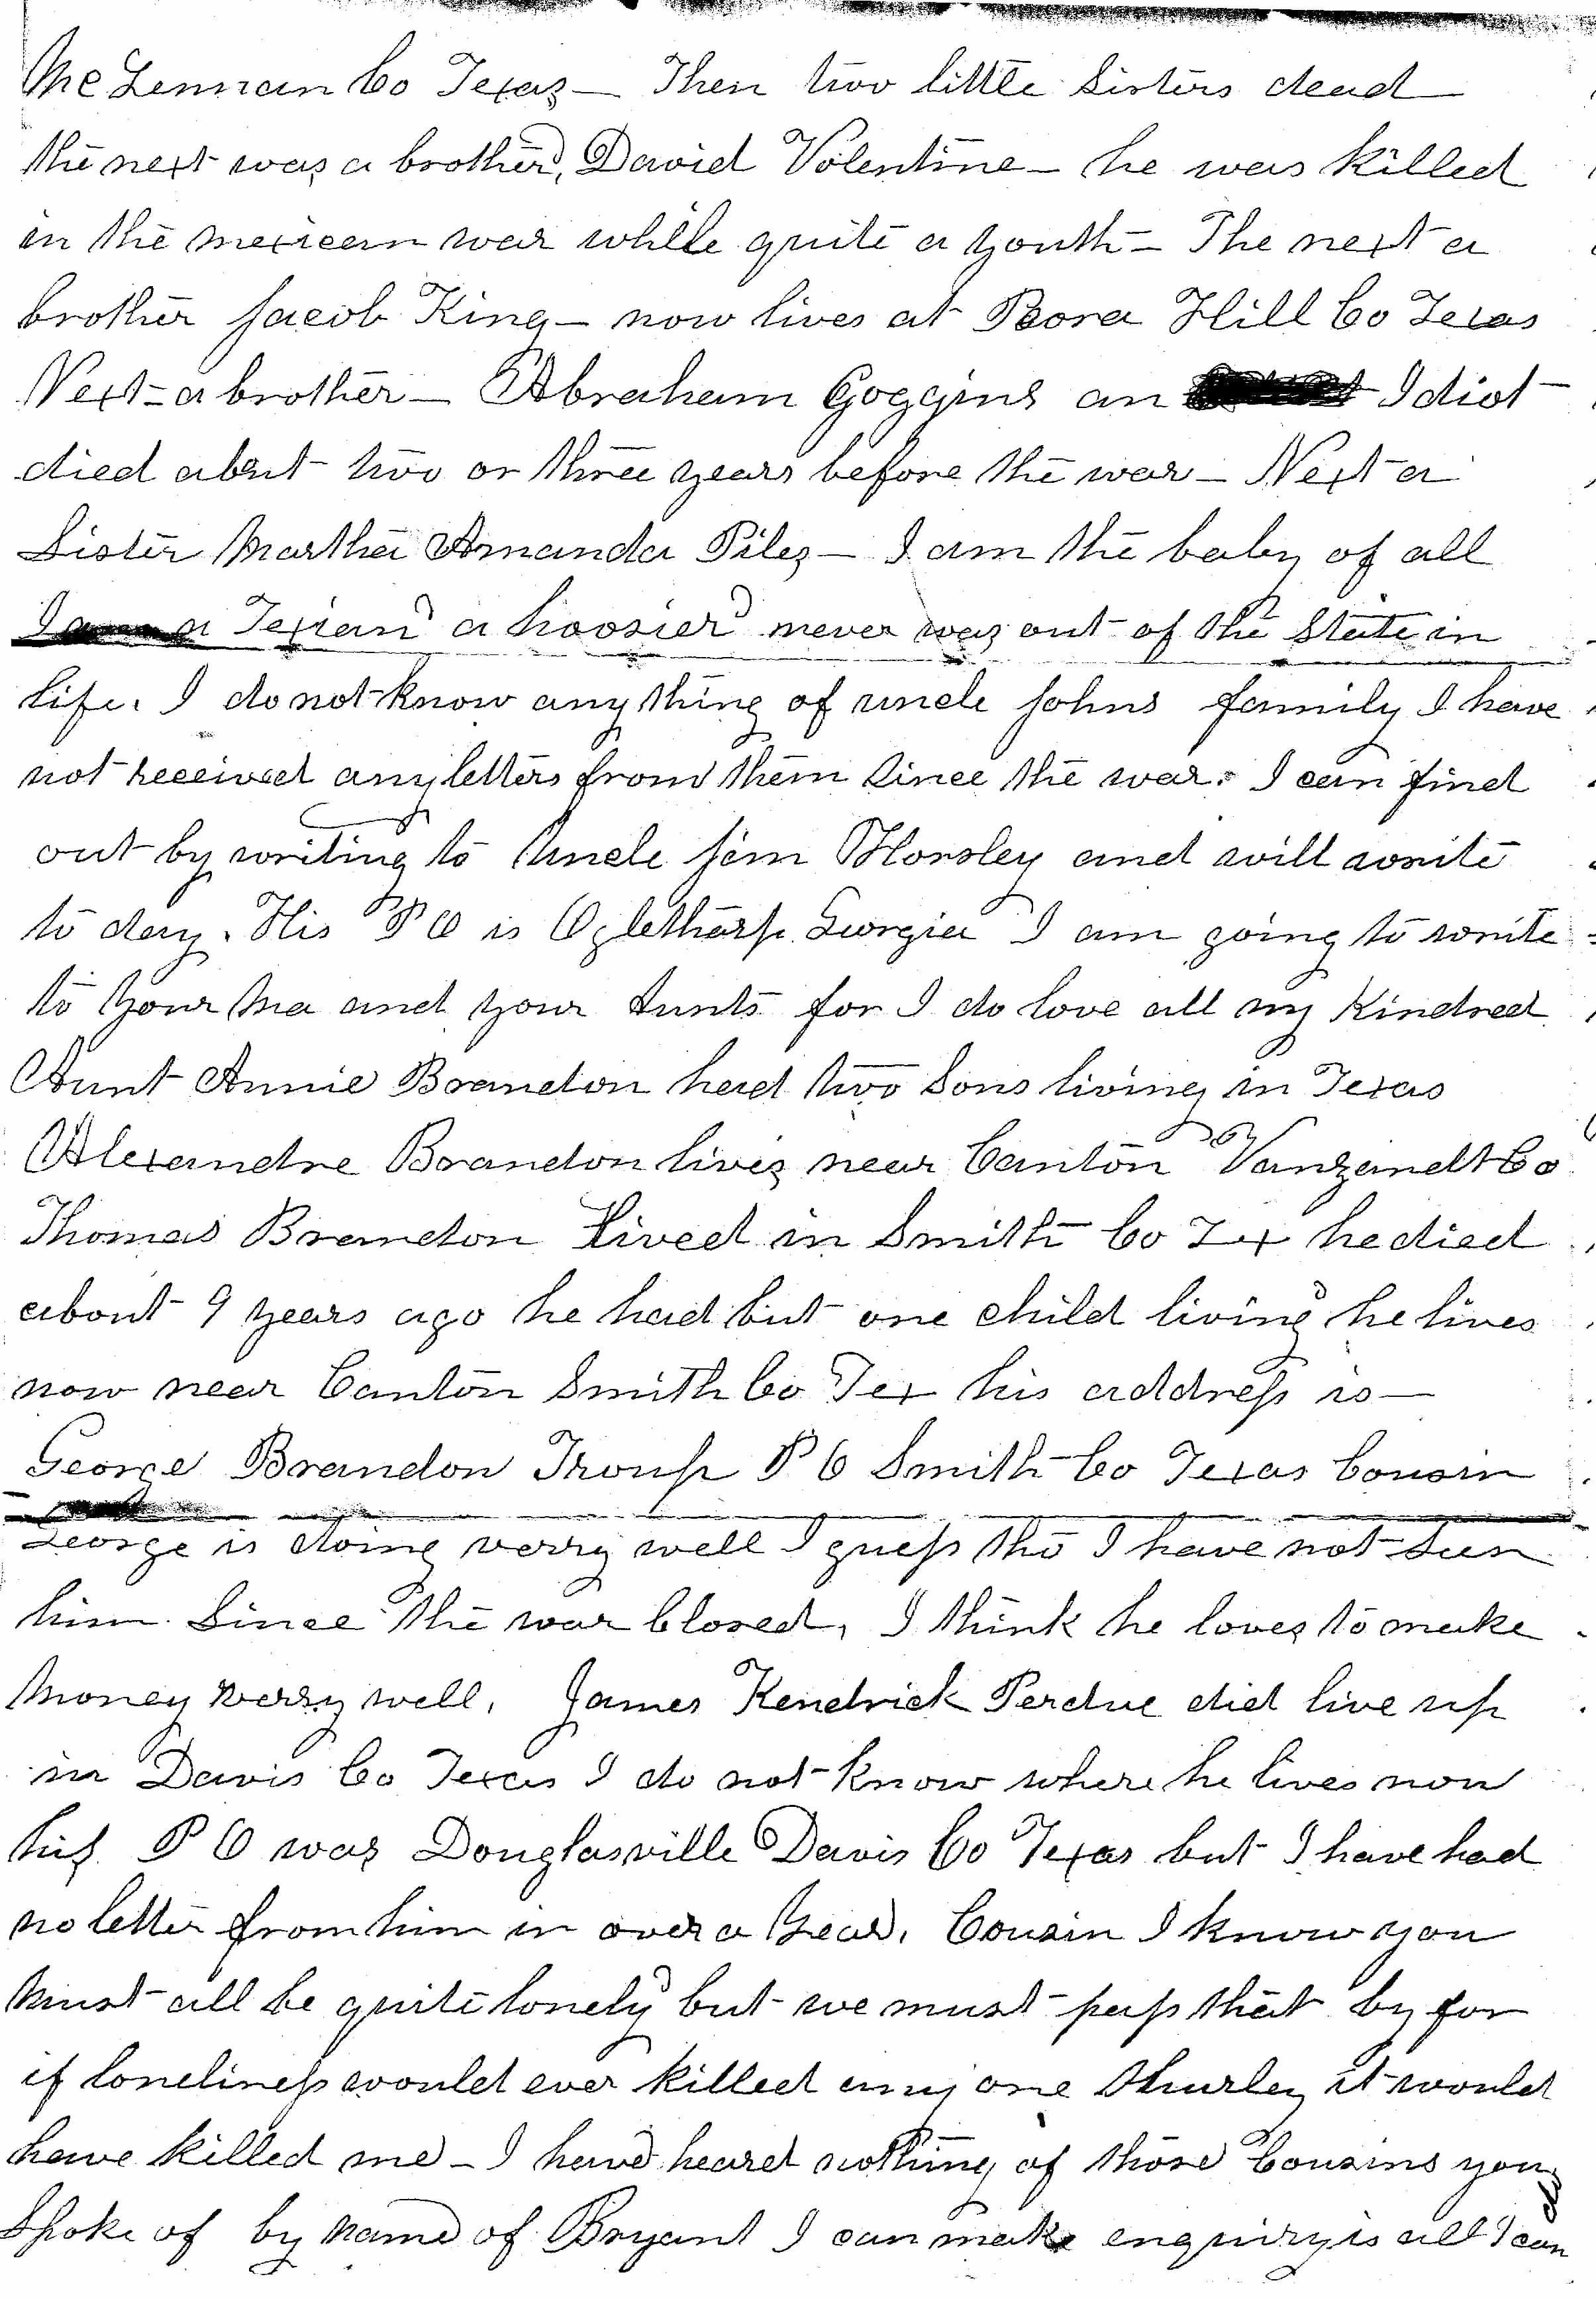 McLennan Co Texas — Then two little Sisters dead
the next was a brother, David Volentine — he was killed
in the mexican war while quite a youth — The next a
brother Jacob King — now lives at Peora Hill Co Texas
Next — a brother — Abraham Goggins an Idiot
died about two or three years before the war — Next a
Sister Martha Amanda Piles — I am the baby of all
I am a Texian a hoosier never was out of the State in
life. I do not know any thing of uncle Johns family I have
not received any letters from them Since the war. I can find
out by writing to Uncle Jim Horsley and will write
to day. His P O is Oglethorp Georgia I am going to write
to your Ma and your Aunts for I do love all my Kindred
Aunt Annie Brandon had two Sons living in Texas
Alexandre Brandon lives near Canton Vanzandt Co
Thomas Brandon Lived in Smith Co Tx he died
about 9 years ago he had but one child living he lives
now near Canton Smith Co Tex his address is —
George Brandon Troup P O Smith Co Texas Cousin
George is doing verry well I guess tho I have not Seen
him Since the war Closed, I think he loves to make
Money verry well. James Kendrick Perdue did live up
in Davis Co Texas I do not know where he lives now
his P O was Douglasville Davis Co Texas but I have had
no letter from him in over a Year. Cousin I know you
Must all be quite lonely but we must pass that by for
if loneliness would ever killed any one Shurley it would
have killed me — I have heard nothing of those Cousins you
Spoke of by name of Bryant I can make enquiry is all I can
do